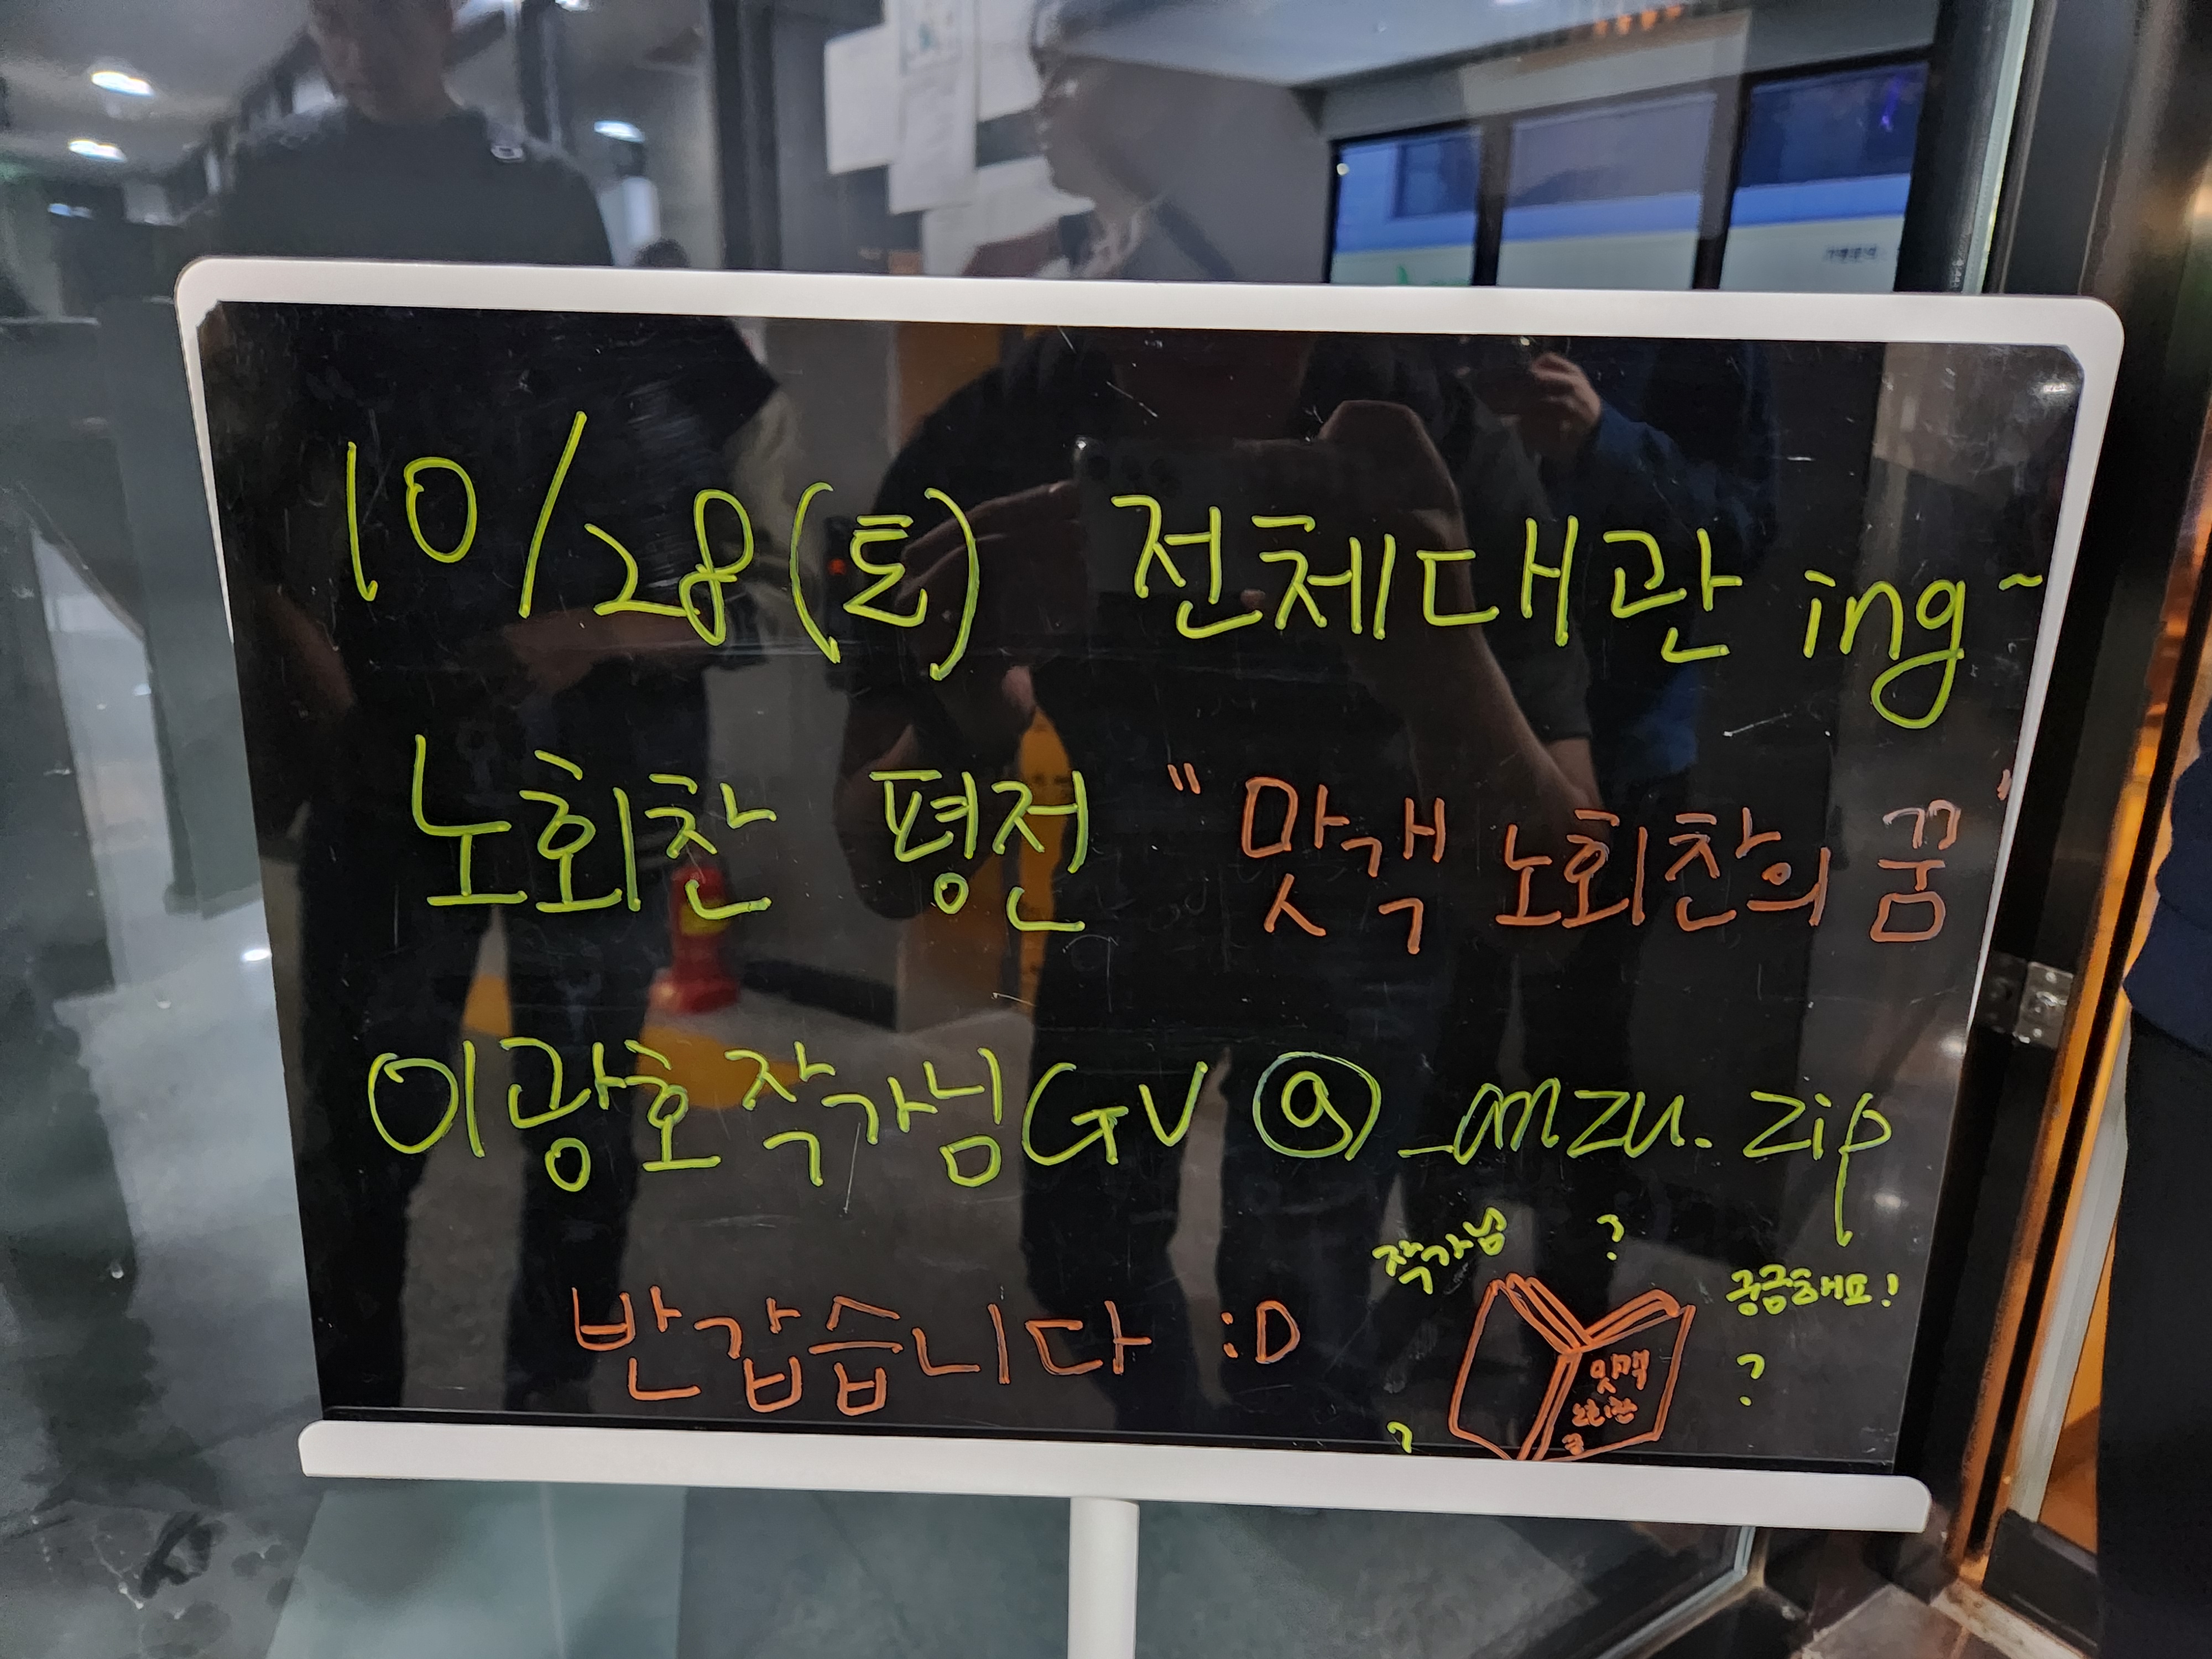 10/28(토) 전체대관 ing~
노회찬 평전 "맛객 노회찬의 꿈"
이광호작가님GV @_mzu.zip
작가님 ?
궁금해요!
반갑습니다 :D
?
맛객
노회찬
?